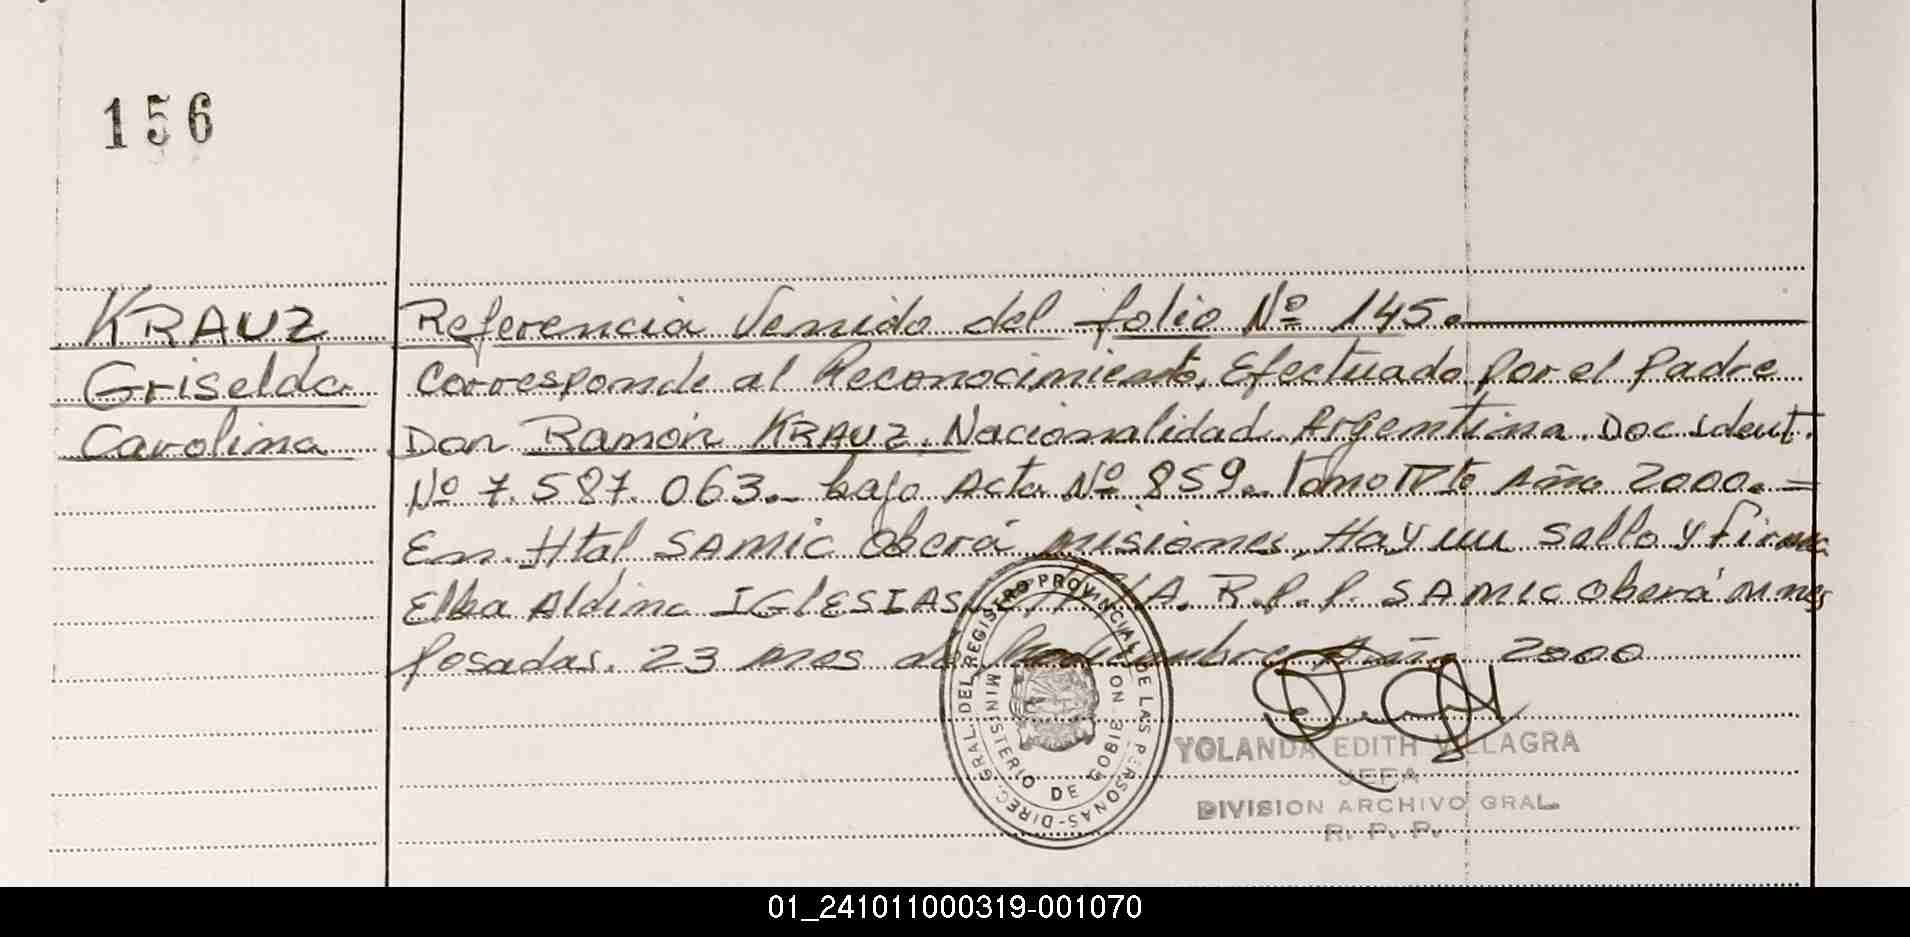 156
KRAUZ
Griselda
Carolina
Referencia Venido del folio Nº 145.
Corresponde al Reconocimiento, Efectuado por el padre
Don Ramón KRAUZ, Nacionalidad Argentina. Doc Ident.
Nº 7.587.063.- bajo Acta Nº 859.- Tomo IVto Año 2000.=
En Htal SAMIC Oberá Misiones, Hay un Sello y firma
Elba Aldina IGLESIAS R.P.P. SAMIC Oberá Mnes
Posadas, 23 mes de Año 2000
DIREC. GRAL. DEL REGISTRO PROVINCIAL DE LAS PERSONAS
MINISTERIO DE GOBIE ION
YOLANDA EDITH VILLAGRA
JEFA
DIVISION ARCHIVO GRAL.
R. P. P.
01_241011000319-001070